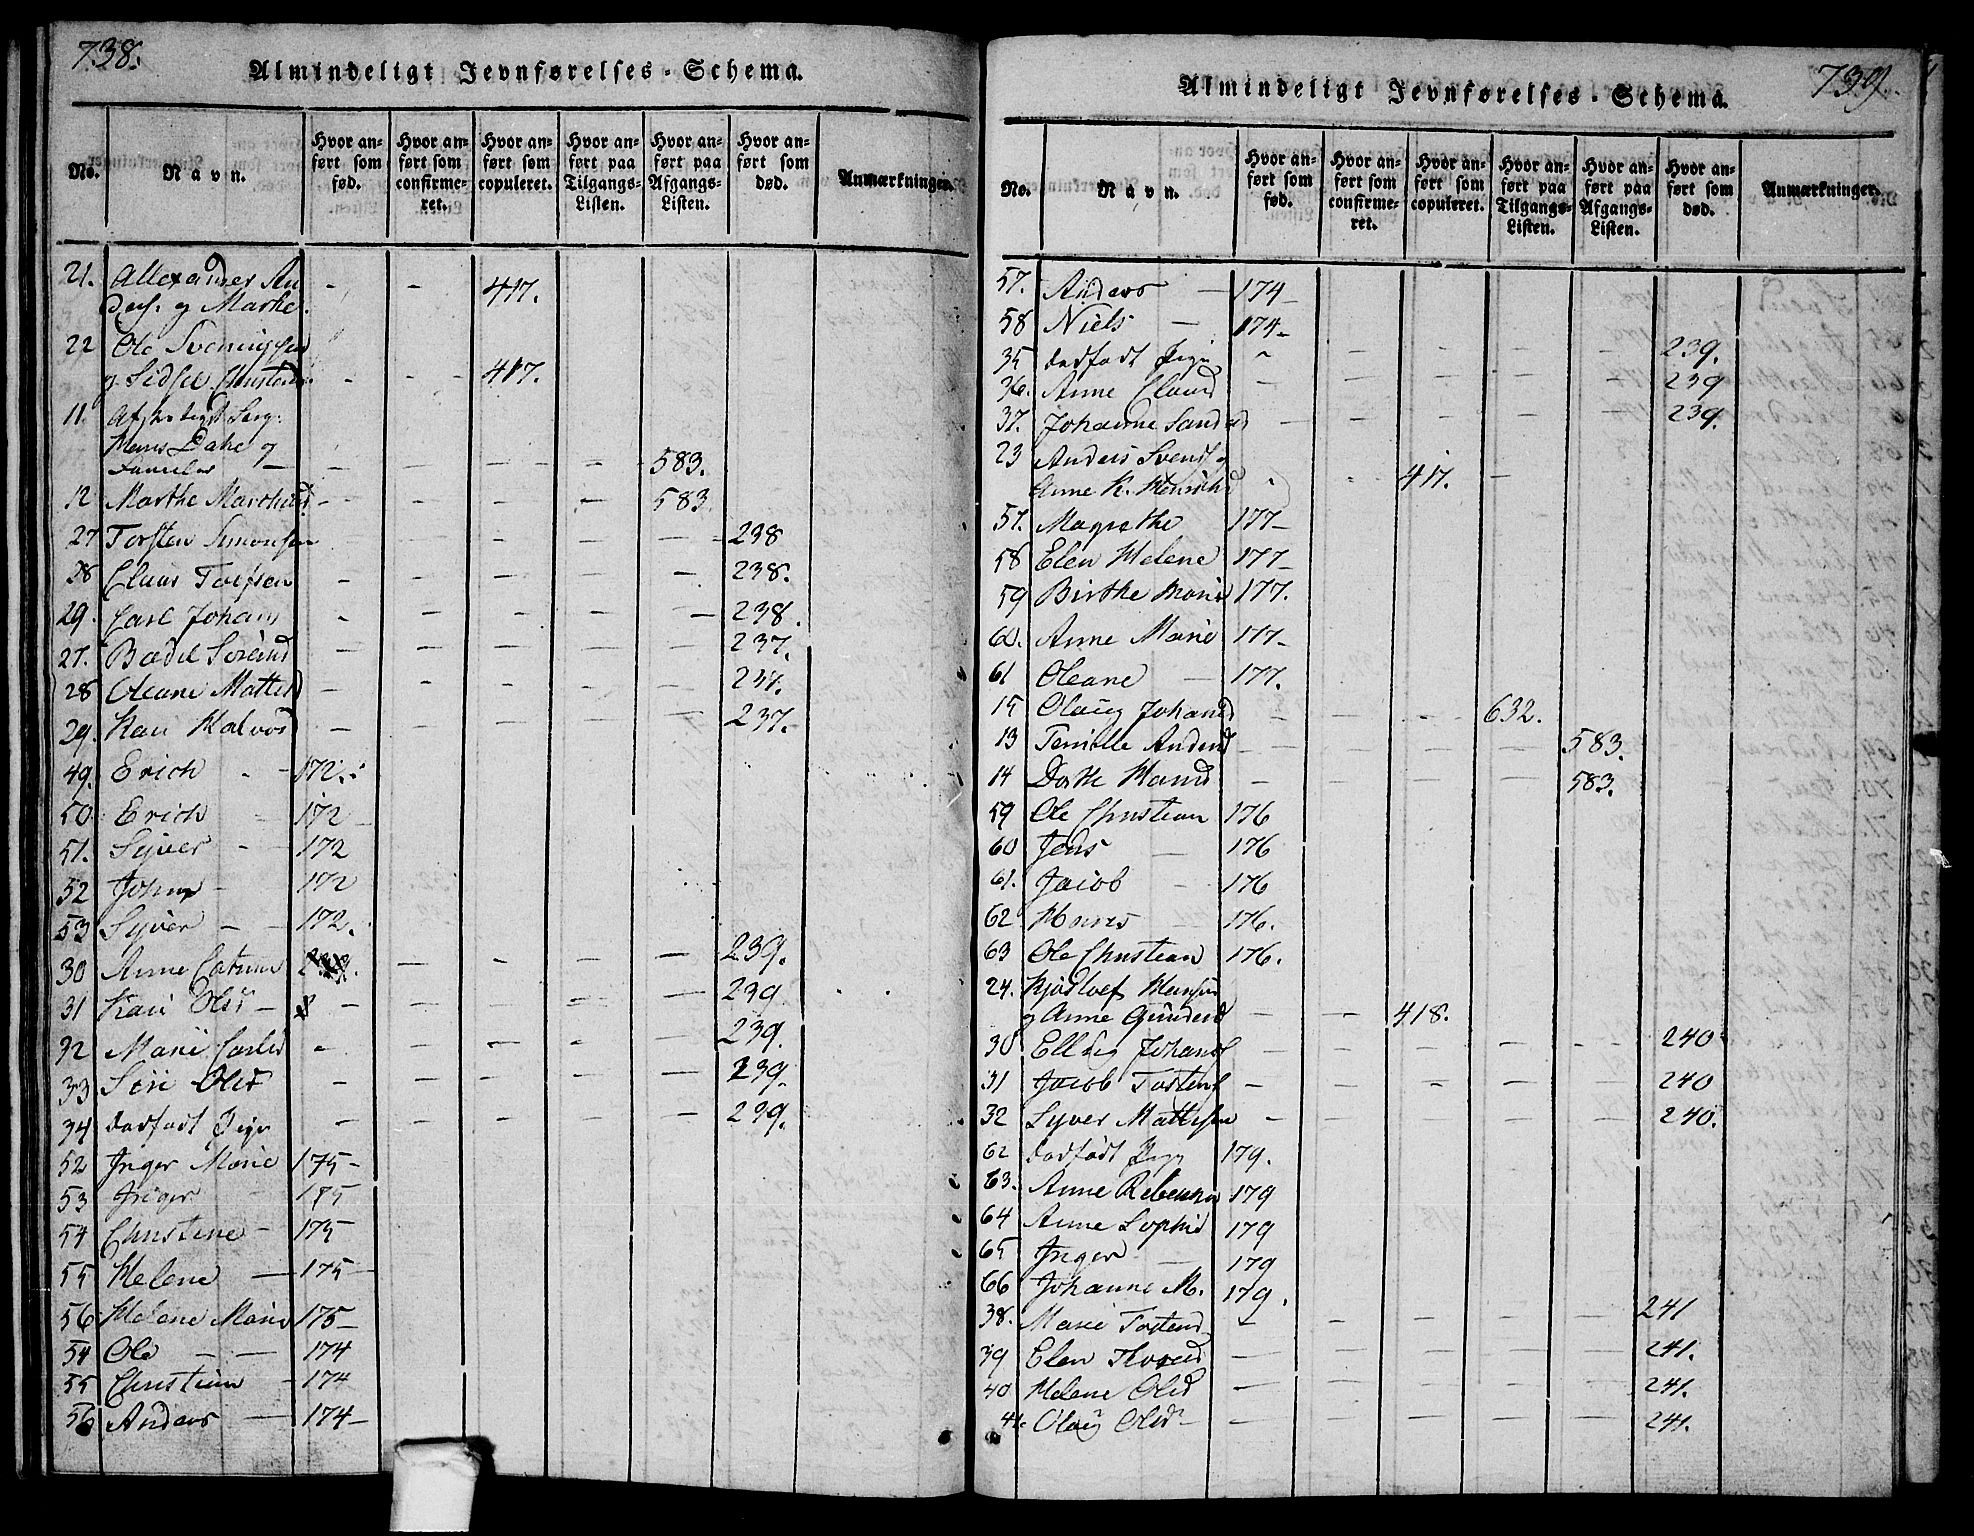 738.
Almindeligt Jevnførelses-Schema.
No.
Navn.
Hvor anført som fød.
Hvor anført som confirmeret.
Hvor anført som copuleret.
Hvor anført paa Tilgangs-Listen.
Hvor anført paa Afgangs-Listen.
Hvor anført som død.
Anmærkninger.
21. Allexander An
ders. og Marthe - - 417.
22 Ole Sveningsen
og Sidsel Christens. - - 417.
11. Afskediget Serg:
Hans Dahl og
Familie - - - - 583.
12 Marthe - - - - 583.
27 Torsten Simonsen - - - - 238
28 Claus - - - - - 238.
29. Carl Johan - - - - - 238.
27. Bodel - - - - - 237.
28 Oleane - - - - - 237.
29. Kari Halvors - - - - - 237.
49. Erich - - 172.
50 Erich - 172
51. Syver - 172
52 John - 172
53 Syver - - 172.
30 Anne - - - - 239.
31 Kari Olsd - - - - - 239
32 Marie - - - - - 239.
33 Siri Olsd - - - - - 239.
34 dødfødt Pige - - - - - 239.
52 Inger Marie 175-
53 Inger - 175
54 Christine - 175
55 Helene - 175-
56 Helene Marie 175-
54 Ole - - 174
55 Christian - 174
56 Anders - 174-
739.
Almindeligt Jevnførelses-Schema.
No.
Navn.
Hvor anført som fød.
Hvor anført som confirmeret.
Hvor anført som copuleret.
Hvor anført paa Tilgangs-Listen.
Hvor anført paa Afgangs-Listen.
Hvor anført som død.
Anmærkninger.
57. Anders - 174-
58 Niels - 174-
35 dødfødt Pige - - - - - 239.
36. Anne - - - - - 239
37. Johanne - - - - 239.
23 Anders Svends. og
Anne K. - - 417. -
57. Magrethe 177-
58 Elen Helene 177-
59 Birthe Marie 177.
60. Anne Marie 177-
61 Oleane - 177.
15 Olaug Johans - - - 632.
13 Pernille Anders - - - - 583.
14 Dorthe Hans - - - - 583.
59 Ole Christian 176
60 Jens - 176
61. Jacob - 176
62 Hans 176.
63 Ole Christian 176.
24. Hansen
og Anne Gunders - - 418.
30 Johans - - - - - 240
31 Jacob Torstens - - - - - 240
32 Syver Mathisen - - - - - 240.
62 dødfødt Pige 179.
63. Anne 179
64 Anne Sophie 179
65 Inger - 179
66 Johanne M. 179.
38. Marie Torstens - - - - - 241
39 Elen - - - - - 241.
40 Helene Olsd - - - - - 241.
41. Olaug Olsd - - - - - 241.